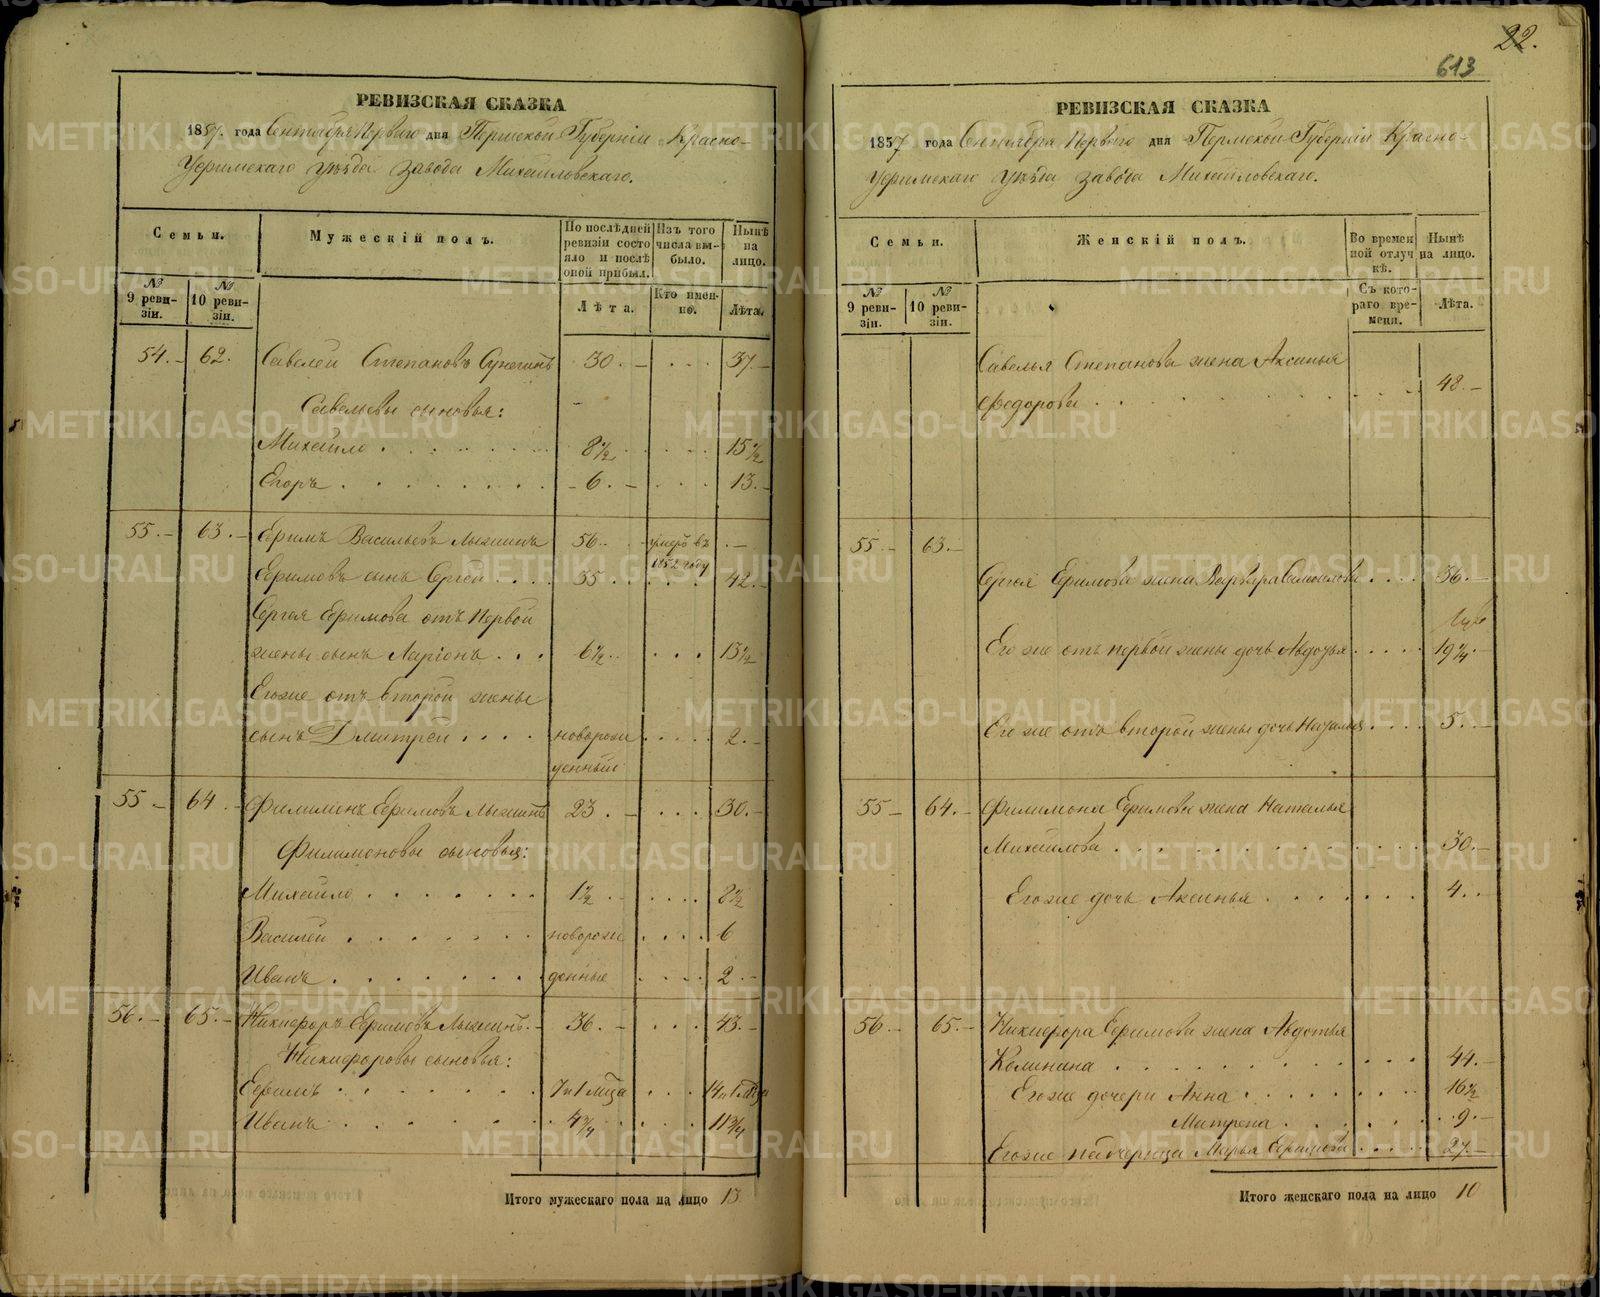 22.
613
РЕВИЗСКАЯ СКАЗКА
1857. года Сентября Перваго дня Пермской Губерніи Красно-
Уфимскаго уѣзда завода Михайловскаго.
Семьи.
Мужескій полъ.
По послѣдней ревизіи состояло и послѣ оной прибыл.
Изъ того числа выбыло.
Нынѣ на лицо.
№ 9 ревизіи.
№ 10 ревизіи.
Лѣта.
Кто именно.
Лѣта.
54. 62. Савелей Степановъ 30. 37.
Савельевы сыновья:
Михайло 8 1/2 15 1/2
Егоръ 6. 13.
55. 63. Ефимъ Васильевъ 56. умеръ въ 1852 году
Ефимовъ сынъ Сергей 35 42.
Сергея Ефимова отъ первой
жены сынъ Ларіонъ 6 1/2 13 1/2
Его же отъ второй жены
сынъ Дмитрей новорожденный 2.
55 64. Филимонъ Ефимовъ 23. 30.
Филимоновы сыновья:
Михайло 1 1/2 8 1/2
Василей новорож 6
Иванъ денные 2
56. 65. Никифоръ Ефимовъ 36. 43.
Никифоровы сыновья:
Ефимъ 7 и 1 мѣсяца 14 и 1 мѣсяца
Иванъ 4 3/4 11 3/4
Итого мужескаго пола на лицо 13
РЕВИЗСКАЯ СКАЗКА
1857 года Сентября Перваго дня Пермской Губерніи Красно-
Уфимскаго уѣзда завода Михайловскаго.
Семьи.
Женскій полъ.
Во временной отлучкѣ.
Нынѣ на лицо.
№ 9 ревизіи.
№ 10 ревизіи.
Съ котораго времени.
Лѣта.
Савелья Степанова жена Аксинья
Федорова 48.
55 63. Сергея Ефимова жена Варвара Самойлова 36.
Его же отъ первой жены дочь Авдотья 19 1/4
Его же отъ второй жены дочь Наталья 5.
55 64. Филимона Ефимова жена Наталья
Михайлова 30.
Его же дочь Аксинья 4.
56 65. Никифора Ефимова жена Авдотья
Калинина 44.
Его же дочери Анна 16 1/2
Матрена 9.
Его же падчерица Марья Ефимова 27.
Итого женскаго пола на лицо 10
METRIKI.GASO-URAL.RU